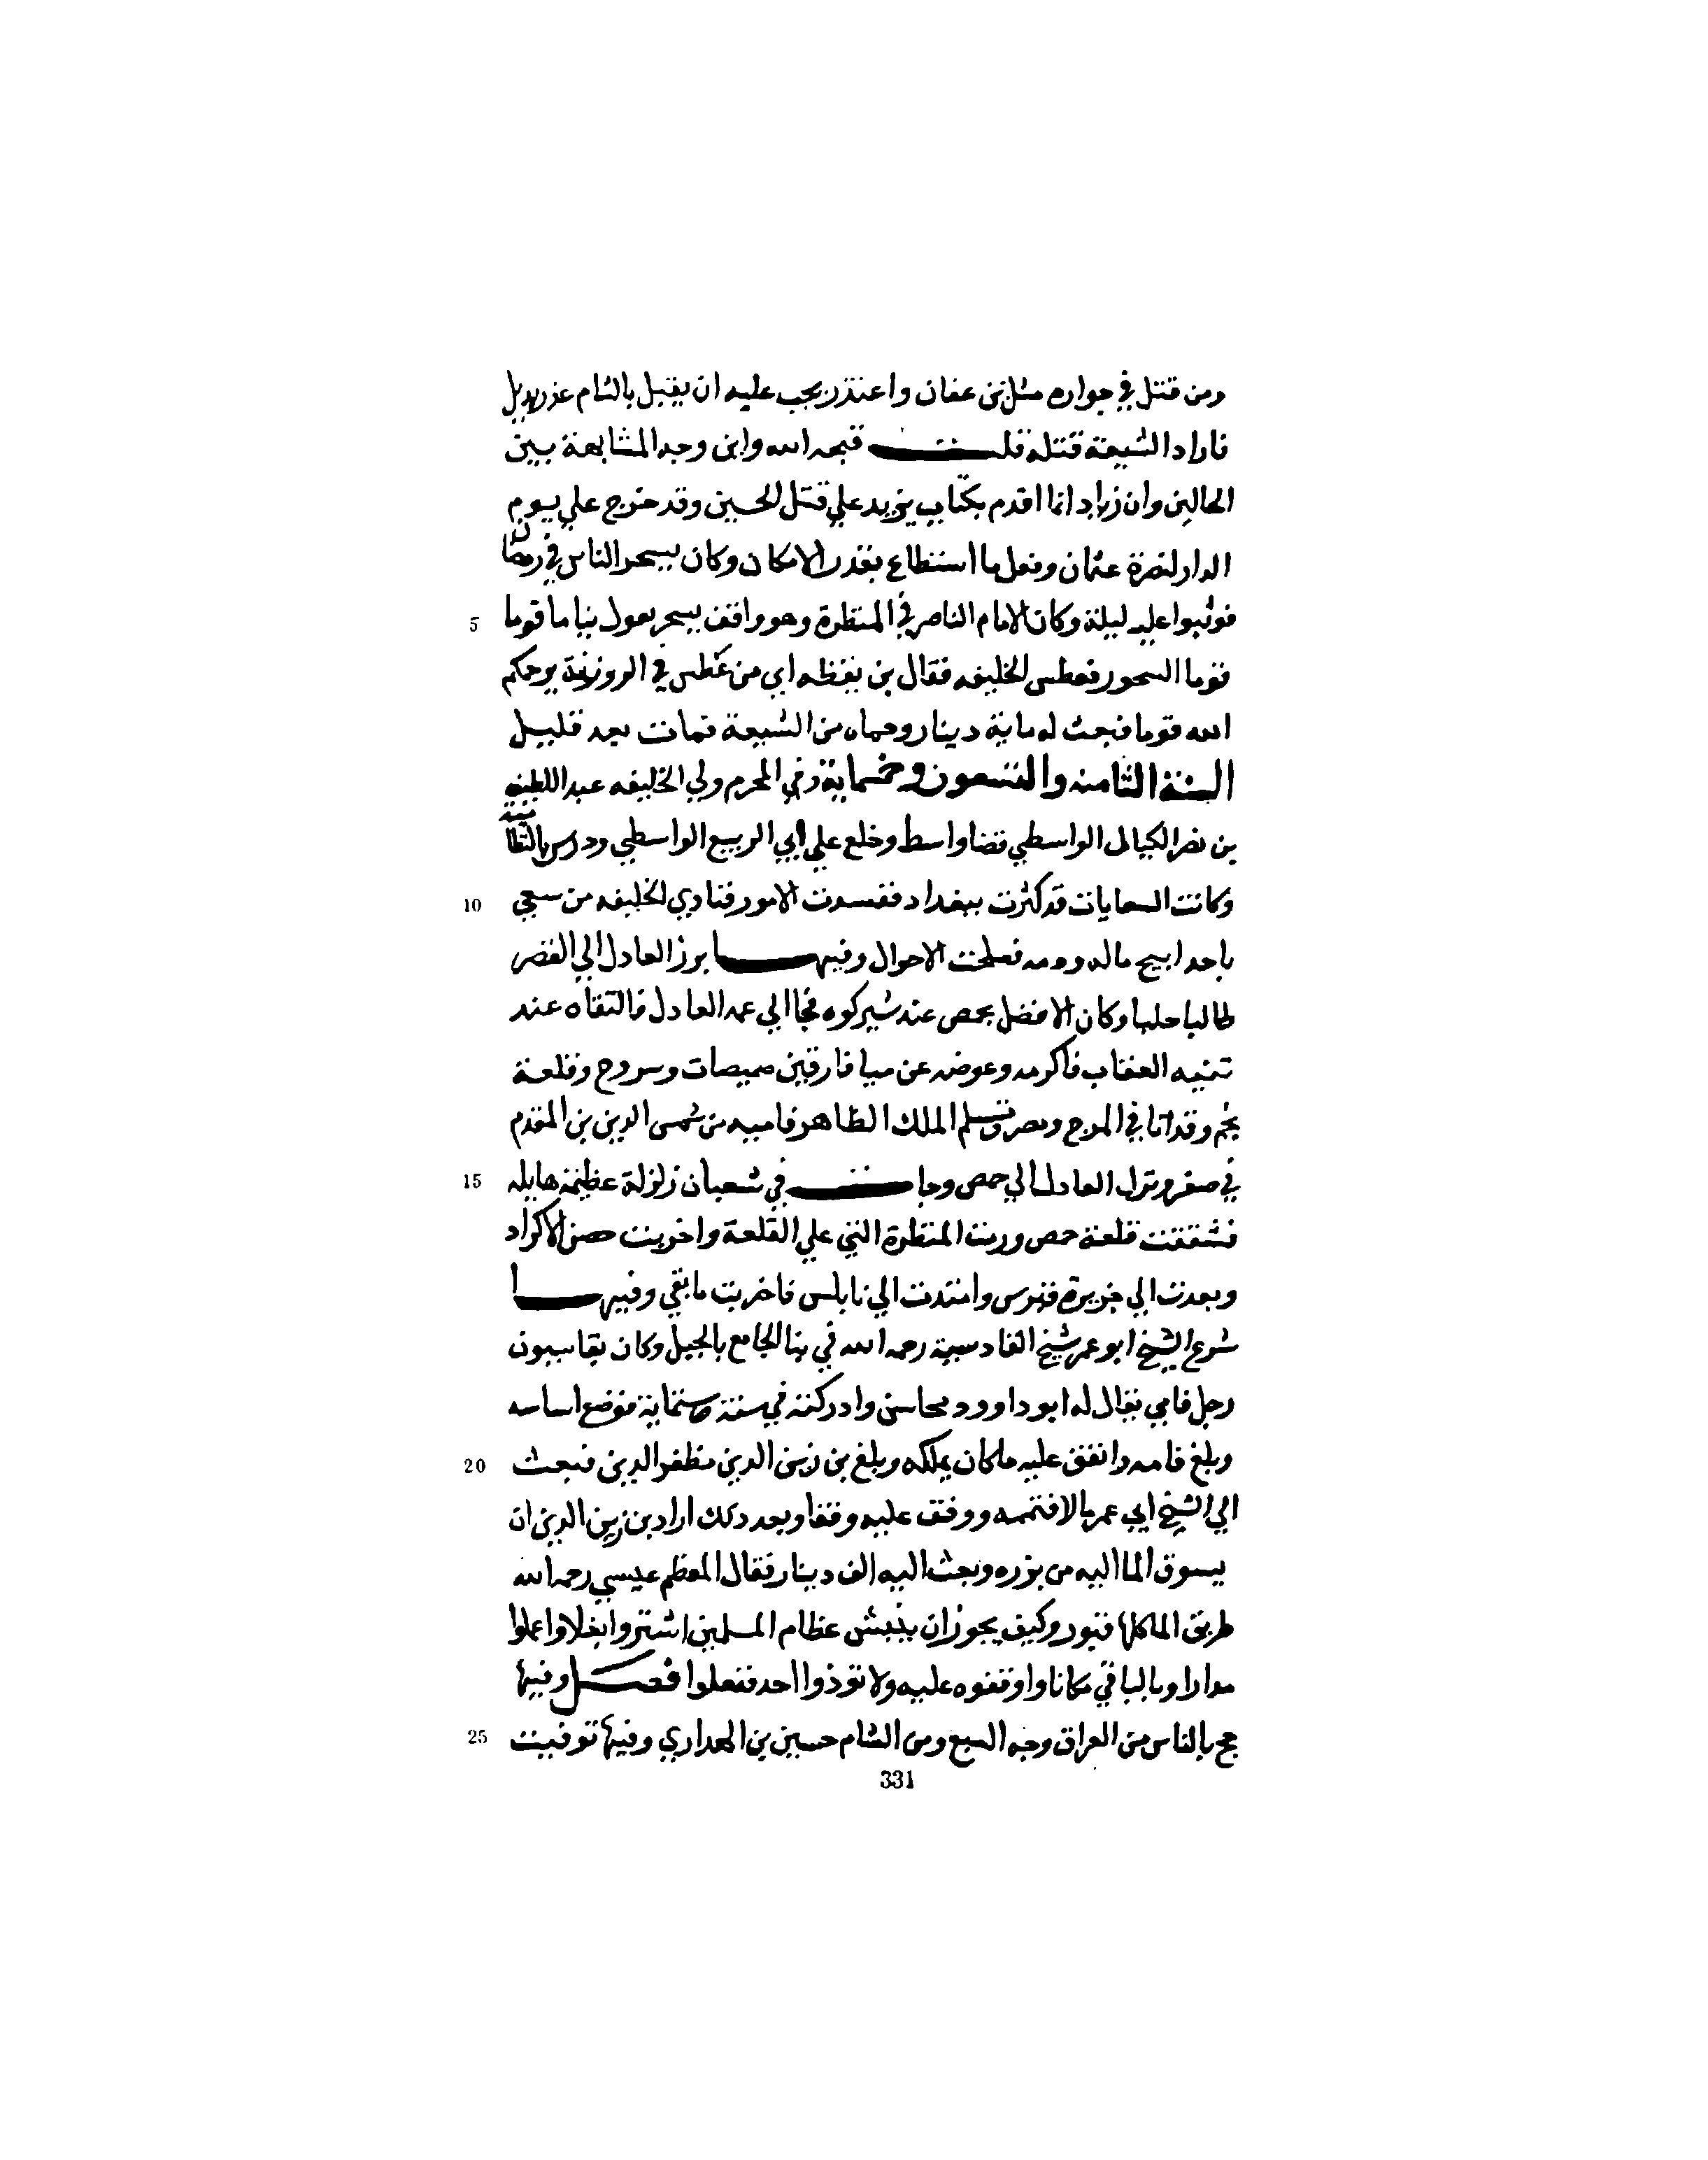 ومن قتل في جواره مثل بن عفان واعتذر يجب عليه ان يقبل بالشام عذر يزيد
فاراد الشيعة قتله قلت قبحه الله واين وجه المشابهة بين
الحالين وان زياد انما اقدم بكتاب يزيد علي قتل الحسين وقد خرج علي يوم
الدار لنصرة عثمان وفعل ما استطاع بقدر الامكان وكان يسحر الناس في رمضان
فوثبوا عليه ليلة وكان الامام الناصر في المنظرة وهو واقف يسحر يقول نياما قوما
5
قوما السحور فعطس الخليفه فقال بن نقطه اي من عطس في الروزنة يرحمكم
الله قوما فبعث له ماية دينار وحماه من الشيعة فمات بعد قليل
السنة الثامنه والتسعون وخمماية وفي المحرم ولي الخليفه عبد اللطيف
بن نصر الكيال الواسطي قضا واسط وخلع علي ابي الربيع الواسطي ودرس بالنظامية
وكانت السعايات قد كثرت ببغداد ففسدت الامور فنادي الخليفه من سعي
10
باحد ابيح ماله ودمه فصلحت الاحوال وفيها برز العادل الي القصر
طالبا حلبا وكان الافضل بحمص عند شيركوه فجا الي عمه العادل فالتقاه عند
تنيه العقاب فاكرمه وعوضه عن ميافارقين سميصات وسروج وقلعة
نجم وقد اتا في المرج ومصر وتسلم الملك الظاهر فاميه من شمس الدين بن المقدم
في صفر ونزل العادل الي حمص وجات في شعبان زلزلة عظيمة هايله
15
فشققت قلعة حمص ورمت المنظرة التي علي القلعة واخربت حصن الاكراد
وبعدت الي جزيرة قبرس وامتدت الي نابلس فاخربت ما بقي وفيها
شرع الشيخ ابو عمر شيخ القادسية رحمه الله في بنا الجامع بالجبل وكان بقاسيون
رجل فامي يقال له ابو داوود محاسن وادركته في سنة ستماية فوضع اساسه
وبلغ قامه وانفق عليه ما كان يملكه وبلغ بن زين الدين مظفر الدين فبعث
20
الي الشيخ ابي عمر مالا فتممه ووقف عليه وقفا وبعد ذلك اراد بن زين الدين ان
يسوق الما اليه من برزه وبعث اليه الف دينار فقال المعظم عيسي رحمه الله
طريق الما كلها قبور وكيف يجوز ان ينبش عظام المسلمين اشتروا بغلا واعملوا
مدارا وبالباقي مكانا واوقفوه عليه ولا توذوا احد ففعلوا فصل وفيها
حج بالناس من العراق وجه السبع ومن الشام حسين بن الهداري وفيها توفيت
25
331